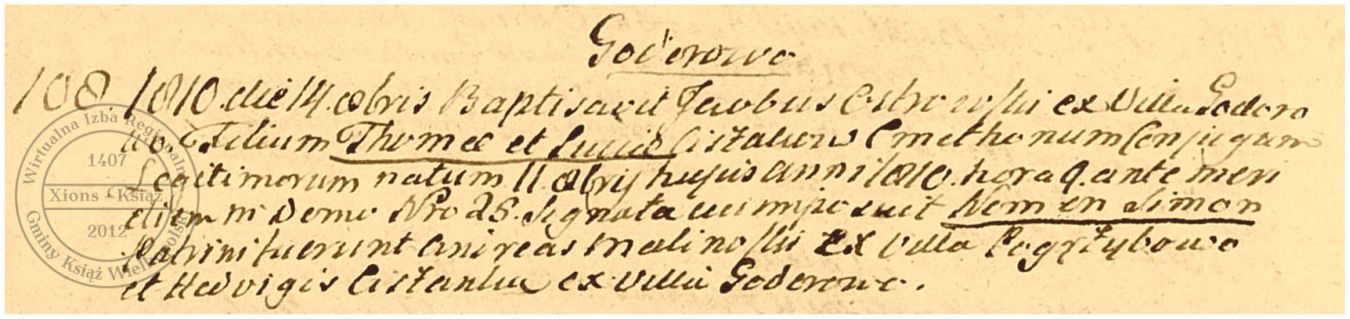 Goderowo
108 1810 die 14 8bris Baptisavit Jacobus Ostrowski ex Villa Godoro
wo Filium Thomæ et Luciæ Cistakow Cmethonum Conjugum
Legitimorum natum 11 8brij hujus anni 1810. hora 9. ante meri
diem in Domo Nro 25. signata cui imposuit Nomen Simon
Patrini fuerunt Andreas Malinoski ex Villa Pogrzybowo
et Hedvigis Cistanka ex Villa Goderowo.
Wirtualna Izba Regionalna
1407
Xions - Książ
2012
Gminy Książ Wielkopolski